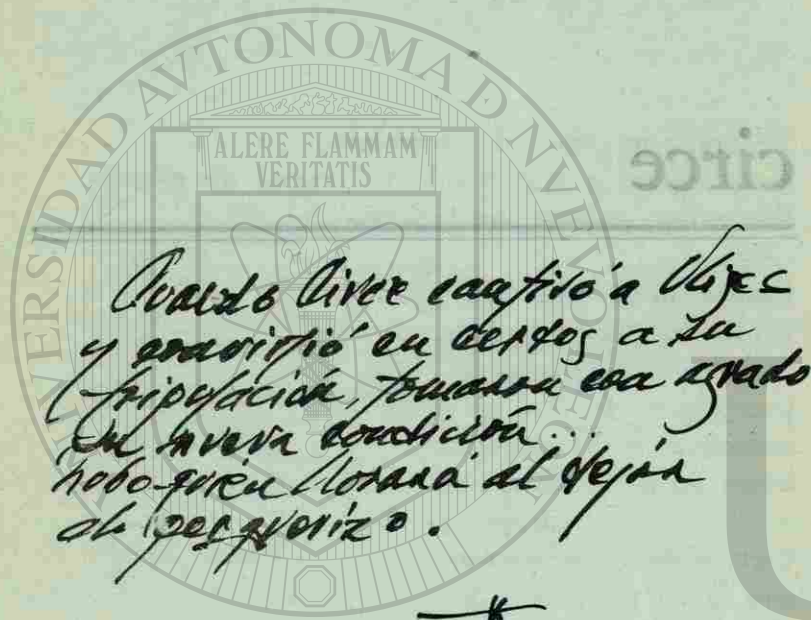 UNIVERSIDAD AVTONOMA D NVEVO LEON
ALERE FLAMMAM
VERITATIS
circe
Cuando Circe cautivó a Ulises
y convirtió en cerdos a su
tripulación, tomaron con agrado
su nueva condición...
hobo quien llorará al dejar
el porquerizo.
U